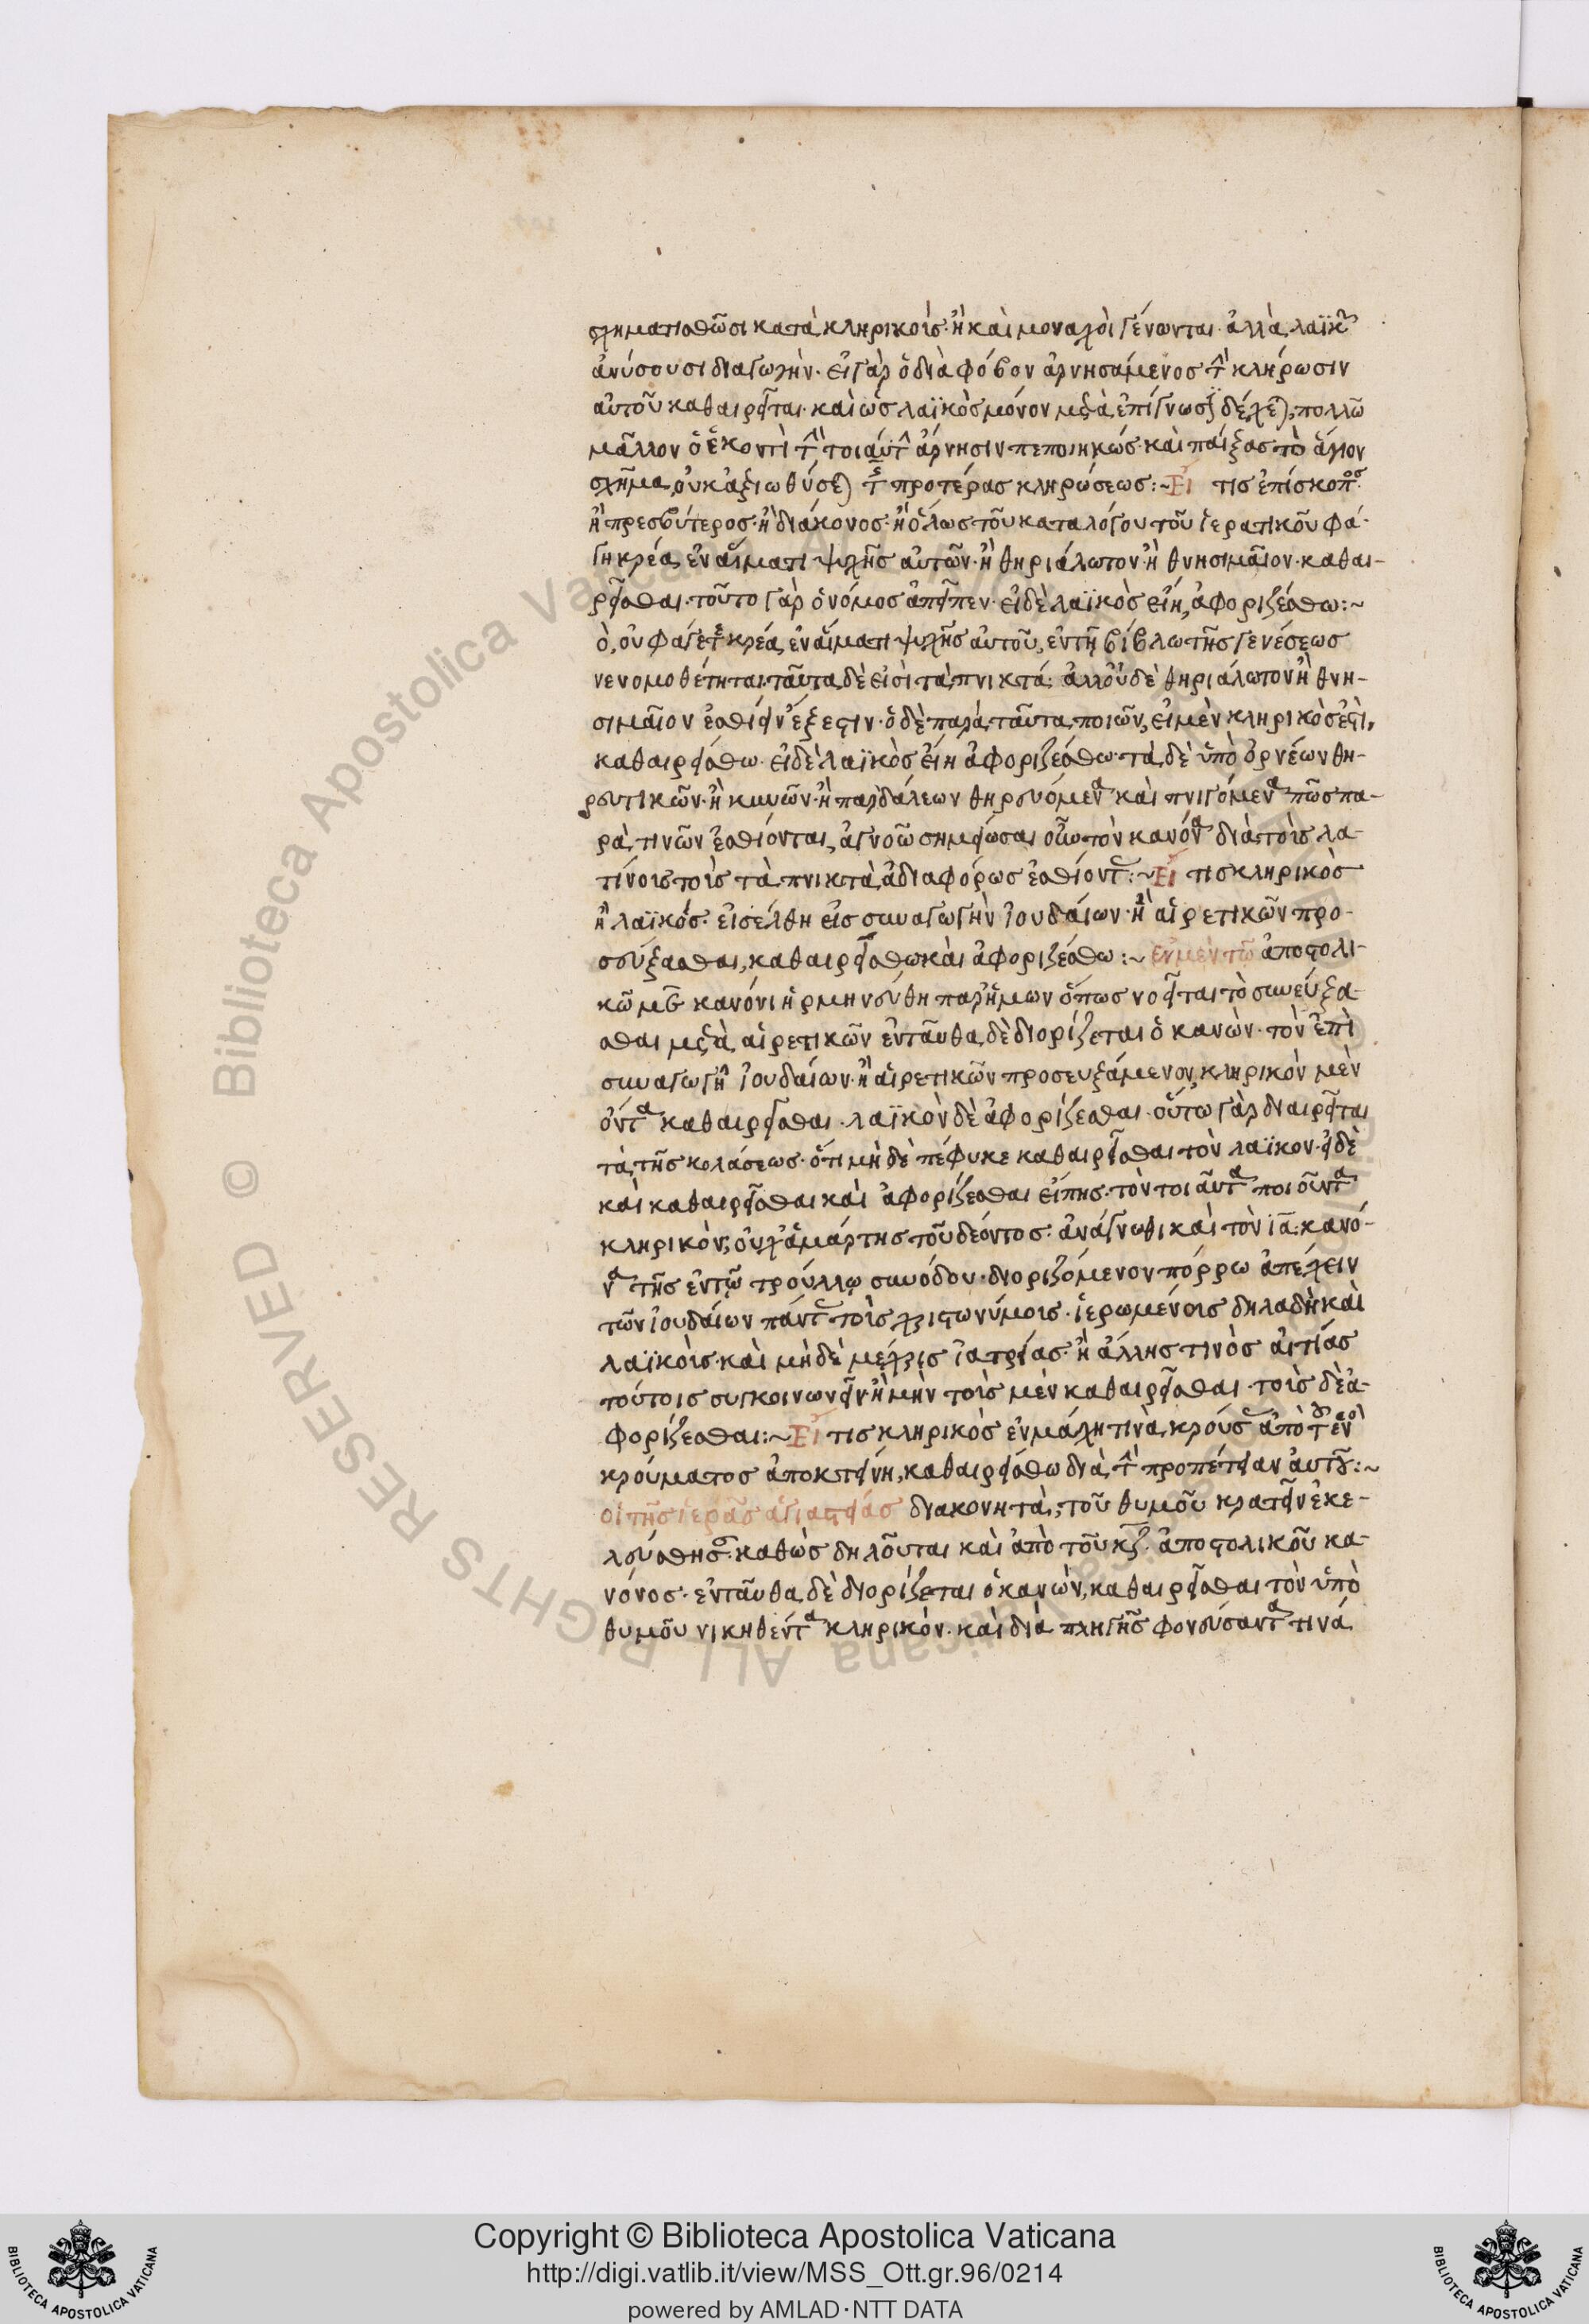 σχηματισθῶσι κατὰ κληρικοίς· ἢ καὶ μοναχοὶ γένωνται· ἀλλὰ λαϊκὴν
ἀνύσουσι διαγωγήν· εἰ γὰρ ὁ διὰ φόβον ἀρνησάμενος τὴν κλήρωσιν
αὐτοῦ καθαιρεῖται· καὶ ὡς λαϊκὸς μόνον μετὰ ἐπίγνωσιν δέχεται, πολλῶ
μᾶλλον ὁ ἑκοντὶ τὴν τοιαύτην ἄρνησιν πεποιηκώς· καὶ παίξας τὸ ἅγιον
σχῆμα, οὐκ ἀξιωθήσεται τῆς προτέρας κληρώσεως :~ Εἴ τις ἐπίσκοπος
ἢ πρεσβύτερος· ἢ διάκονος· ἢ ὅλως τοῦ καταλόγου τοῦ ἱερατικοῦ φά-
γη κρέα, ἐν αἵματι ψυχῆς αὐτῶν· ἢ θηριάλωτον· ἢ θνησιμαῖον· καθαι-
ρεῖσθαι· τοῦτο γὰρ ὁ νόμος ἀπεῖπεν· εἰ δὲ λαϊκὸς εἴη, ἀφοριζέσθω :~
ὁ, οὐ φάγετε κρέα, ἐν αἵματι ψυχῆς αὐτοῦ, ἐν τῇ βίβλω τῆς γενέσεως
νενομοθέτηται· ταῦτα δὲ εἰσὶ τὰ πνικτά· ἀλλ' οὐδὲ θηριάλωτον ἢ θνη-
σιμαῖον ἐσθίειν ἔξεστιν· ὁ δὲ παρὰ ταῦτα ποιῶν, εἰ μὲν κληρικὸς ἐστὶ,
καθαιρείσθω· εἰ δὲ λαϊκὸς εἴη ἀφοριζέσθω· τὰ δὲ ὑπὸ ὀρνέων θη-
ρευτικῶν· ἢ κυνῶν· ἢ παρδάλεων θηρευόμενα καὶ πνιγόμενα πῶς πα-
ρά τινῶν ἐσθίονται, ἀγνοῶ σημείωσαι οὖν τὸν κανόνα διὰ τοὶς λα-
τίνοις τοὶς τὰ πνικτὰ ἀδιαφόρως ἐσθίοντας :~ Εἴ τις κληρικὸς
ἢ λαϊκός· εἰσέλθη εἰς συναγωγὴν ἰουδαίων· ἢ αἱρετικῶν προ-
σεύξασθαι, καθαιρείσθω καὶ ἀφοριζέσθω :~ ἐν μὲν τῶ ἀποστολι-
κῶ με κανόνι ἡρμηνεύθη παρ' ἡμων ὅπως νοεῖται τὸ συνεύξα-
σθαι μετὰ αἱρετικῶν ἐνταῦθα δὲ διορίζεται ὁ κανὼν· τὸν ἐπὶ
συναγωγῆ ἰουδαίων· ἢ αἱρετικῶν προσευξάμενον, κληρικὸν μὲν
ὄντα καθαιρεῖσθαι· λαϊκὸν δὲ ἀφορίζεσθαι· οὕτω γὰρ διαιρεῖται
τὰ τῆς κολάσεως· ὅτι μὴ δὲ πέφυκε καθαιρεῖσθαι τὸν λαϊκον· εἰ δὲ
καὶ καθαιρεῖσθαι καὶ ἀφορίζεσθαι εἴπης· τὸν τοιαῦτα ποιοῦντα
κληρικὸν, οὐχ' ἁμάρτης τοῦ δέοντος· ἀνάγνωθι καὶ τὸν ια· κανό-
να τῆς ἐν τῷ τρούλλῳ συνόδου· διοριζόμενον πόρρω ἀπέχειν
τῶν ἰουδαίων πάντας τοὶς χριστωνύμοις· ἱερωμένοις δηλαδὴ καὶ
λαϊκοὶς· καὶ μὴ δὲ μέχρις ἰατρείας· ἢ ἄλλης τινὸς αἰτίας
τούτοις συγκοινωνεῖν· ἢ μὴν τοὶς μὲν καθαιρεῖσθαι· τοὶς δὲ ἀ-
φορίζεσθαι :~ Εἴ τις κληρικὸς ἐν μάχη τινὰ κρούσας ἀπὸ τοῦ ἑνὸς
κρούματος ἀποκτείνη, καθαιρείσθω διὰ τὴν προπέτειαν αὐτοῦ :~
οἱ τῆς ἱερᾶς ἁγιαστείας διακονητὰι, τοῦ θυμοῦ κρατεῖν ἐκε-
λεύσθησαν· καθὼς δηλοῦται καὶ ἀπὸ τοῦ κζ· ἀποστολικοῦ κα-
νόνος· ἐνταῦθα δὲ διορίζεται ὁ κανὼν, καθαιρεῖσθαι τὸν ὑπὸ
θυμοῦ νικηθέντα κληρικὸν· καὶ διὰ πληγῆς φονεύσαντα τινά
Copyright © Biblioteca Apostolica Vaticana
http://digi.vatlib.it/view/MSS_Ott.gr.96/0214
powered by AMLAD·NTT DATA
BIBLIOTECA APOSTOLICA VATICANA
BIBLIOTECA APOSTOLICA VATICANA
© Biblioteca Apostolica Vaticana ALL RIGHTS RESERVED